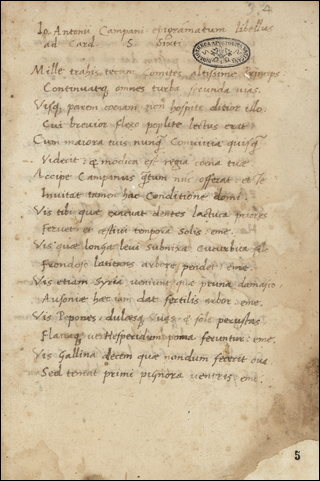 Io. Antonii Campani epigramatum libellus
ad Card. S. Sixti.
Mille trahis tecum comites altissime
Continuatque omnes turba secunda uias.
Visque parem coenam non hospite ditior illo
Cui breuior flexo poplite lectus erat
Cum maiora tuis nunquam conuiuia
Viderit: et modica est regia coena tue
Accipe Campanus nunc offerat et te
Inuitat tamen hac Conditione domi.
Vis tibi que exacuat dentes lactuca
Feruet et estiui tempora solis eme.
Vis que longa leui subnixa cucurbita
Frondose latitans arbore pendet: eme.
Vis etiam Syria ueniunt que pruna damasco
Ausonie hec iam dat fertilis arbor: eme.
Vis Pepones, dulcesque uuas, sole perustas
Hesperidum poma feruntur: eme
Vis Gallina decem que nondum fecerit oua
Sed tentat primi pignora uentris eme.
5